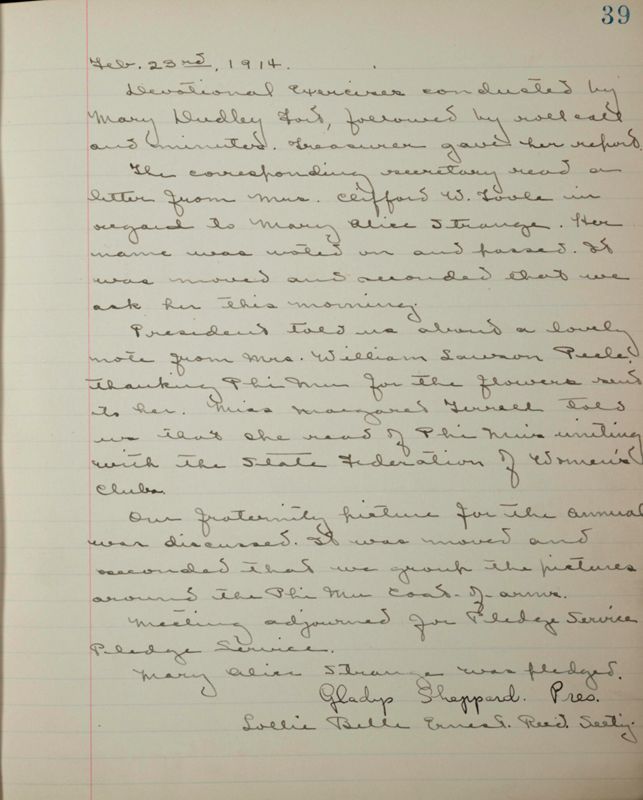 39
Feb. 23rd, 1914.
Devotional Exercises conducted by
Mary Dudley Ford, followed by roll call
and minutes. Treasurer gave her report.
The corresponding secretary read a
letter from Mrs. Clifford W. Toole in
regard to Mary Alice Strange. Her
name was voted on and passed. It
was moved and seconded that we
ask her this morning.
President told us about a lovely
note from Mrs. William Lawson Peele,
thanking Phi Mu for the flowers sent
to her. Miss Margaret Terrell told
us that she read of Phi Mu's uniting
with the State Federation of Women's
Clubs.
Our fraternity picture for the annual
was discussed. It was moved and
seconded that we group the pictures
around the Phi Mu Coat-of-arms.
Meeting adjourned for Pledge Service
Pledge Service.
Mary Alice Strange was pledged.
Gladys Sheppard. Pres.
Lollie Belle Ernest. Rec.